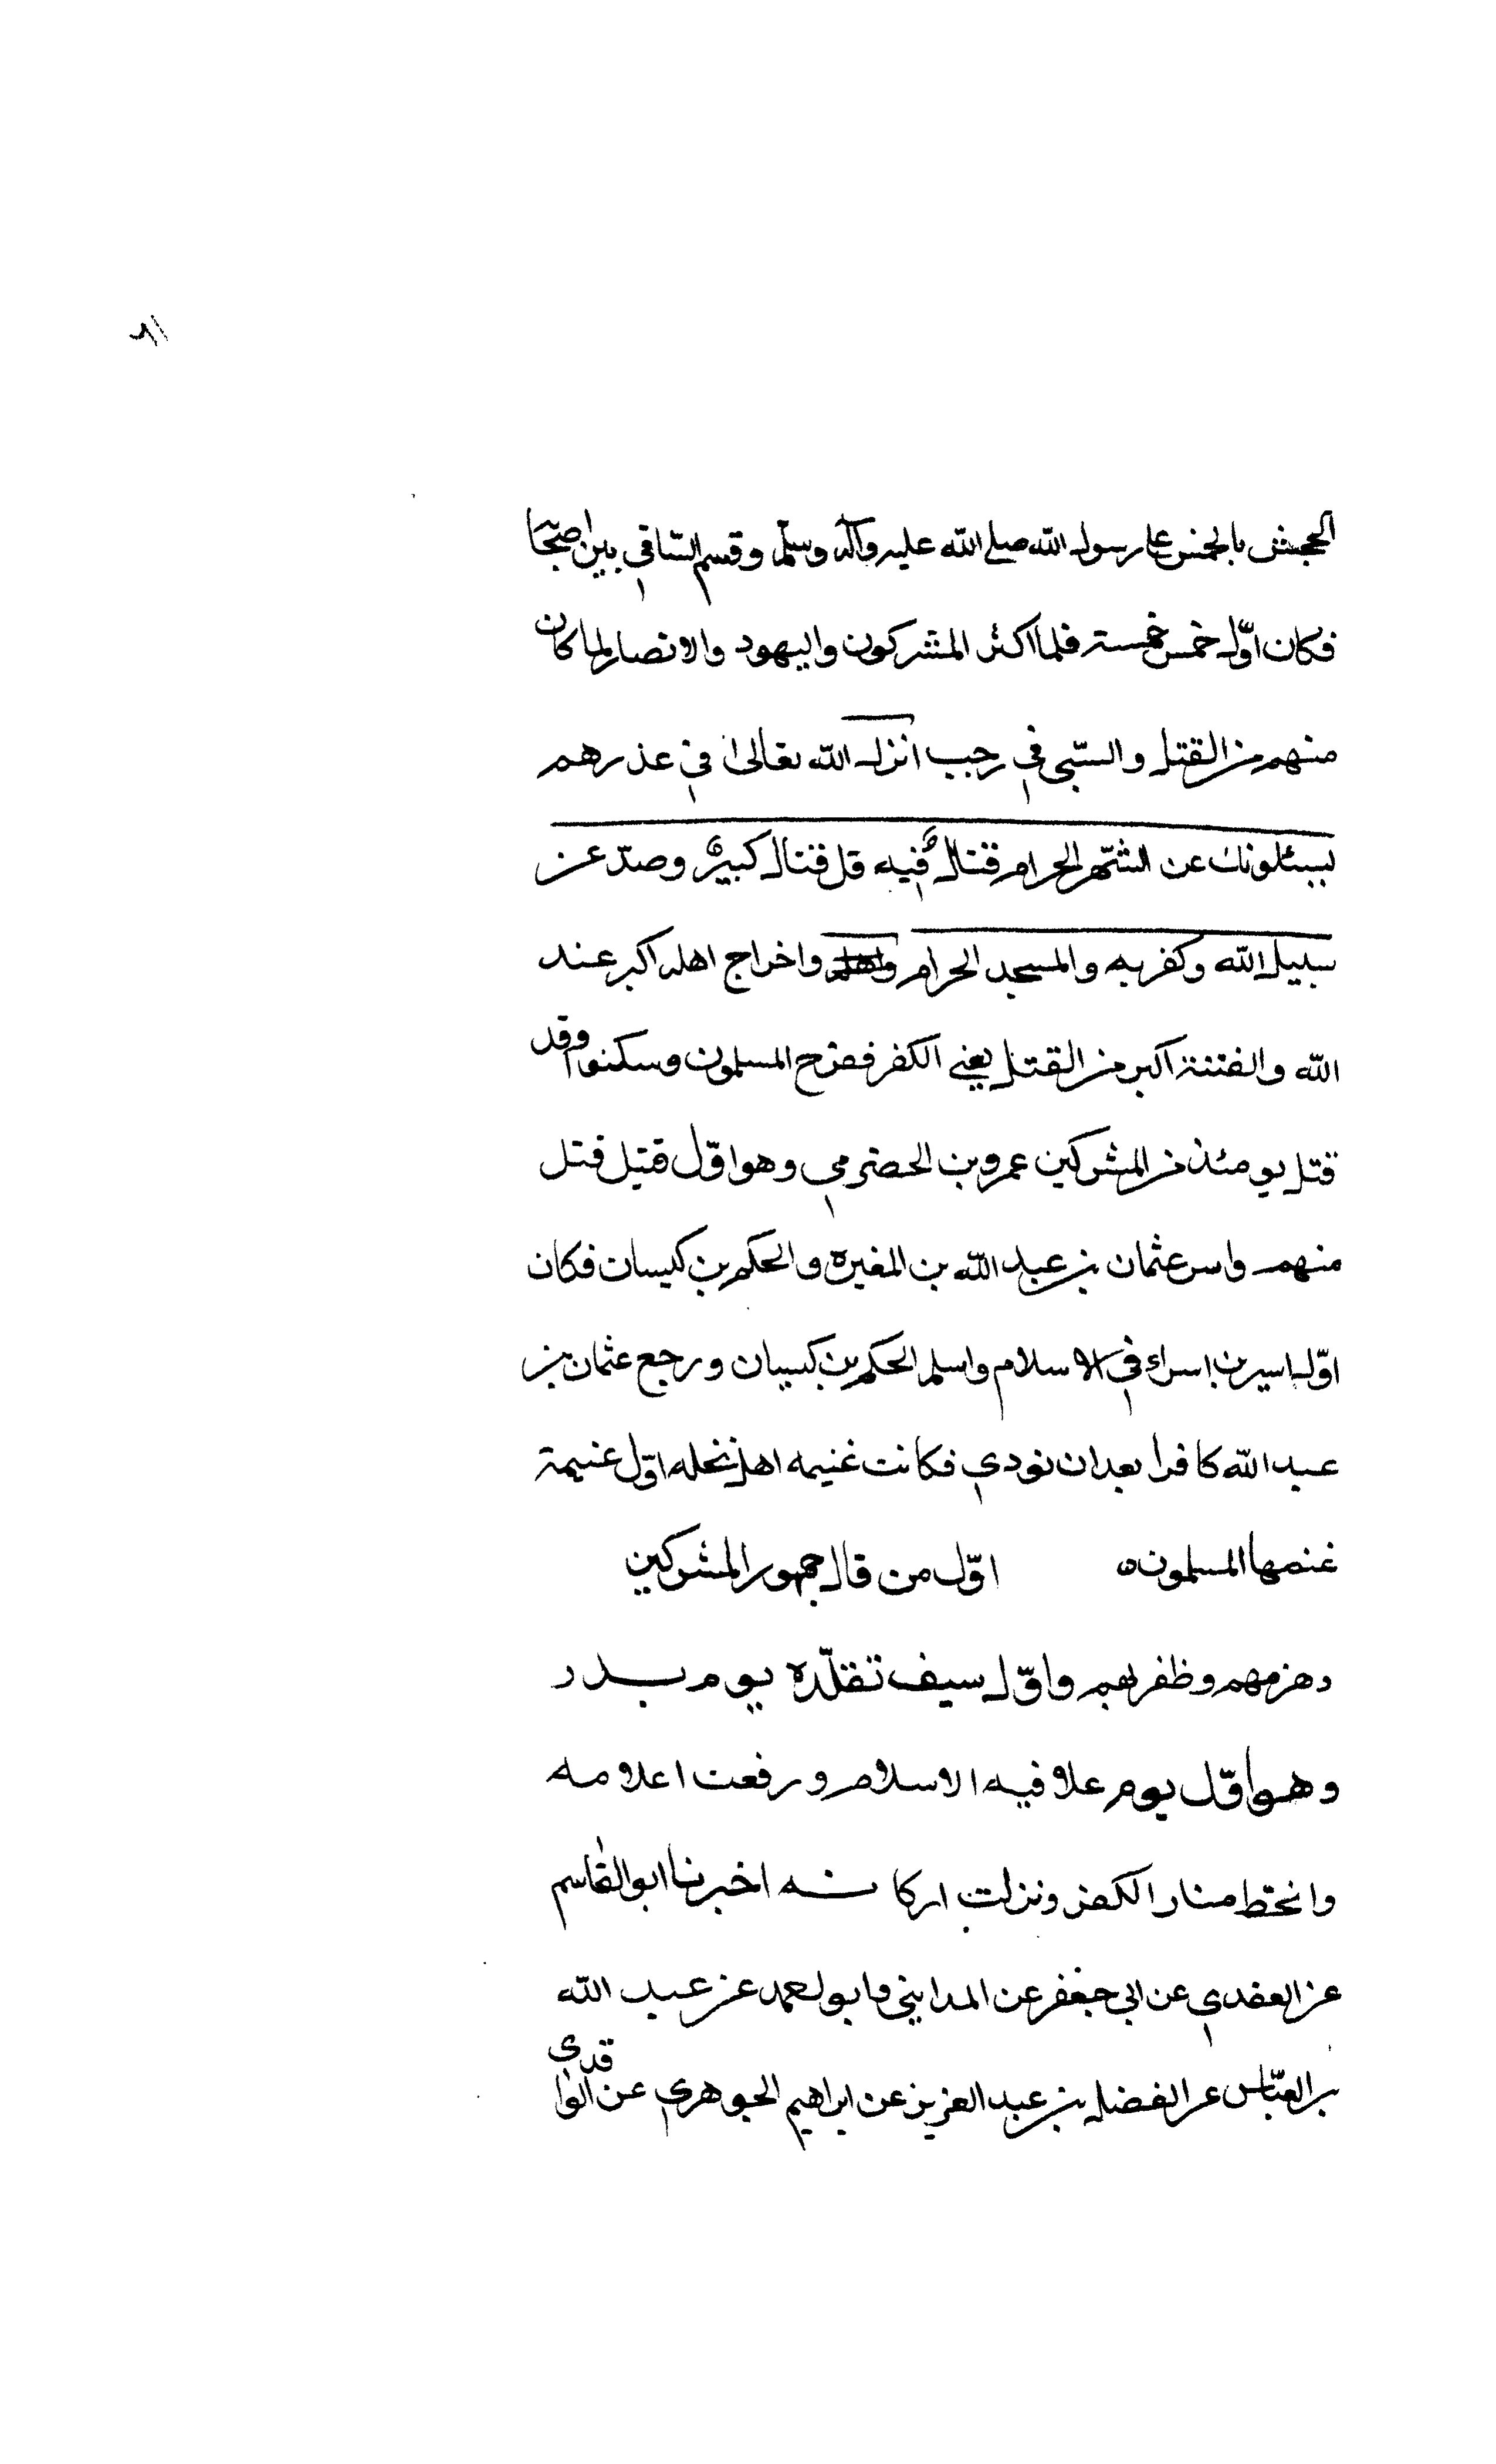 الجحش بالخمس على رسول الله صلى الله عليه وآله وسلم وقسم الباقي بين اصحابه
فكان اوّل خمس خمسته فلما اكثر المشركون واليهود والانصار لما كان
منهم من القتل والسّبى في رجب انزل الله تعالىٰ في عذرهم
يسئلونك عن الشّهر الحرام قتالٌ فيه قل قتال كبيرٌ وصدّ عن
سبيل الله وكفر به والمسجد الحرام واخراج اهله اكبر عند
الله والفتنة اكبر من القتل يعني الكفر ففرح المسلمون وسكنوا وقد
قتل يومئذ من المشركين عمرو بن الحضرمي وهو اوّل قتيل قتل
منهم واسر عثمان بن عبد الله بن المغيره والحكم بن كيسان فكان
اوّل اسيرين اسراء في الاسلام واسلم الحكم بن كيسان ورجع عثمان بن
عبد الله كافرا بعد ان نودي فكانت غنيمه اهل نخله اوّل غنيمة
غنمها المسلمون ه اوّل من قال جمهور المشركين
وهزمهم وظفر بهم واوّل سيف تقلّده يوم بدر
وهو اوّل يوم علا فيه الاسلام ورفعت اعلامه
وانحط منار الكفر ونزلت اركانه اخبرنا ابو القاسم
عن العقدي عن ابي جعفر عن المدايني وابو عن عبد الله
بن العبّاس عن الفضل بن عبد العزيز عن ابراهيم الجوهري عن الواقدي